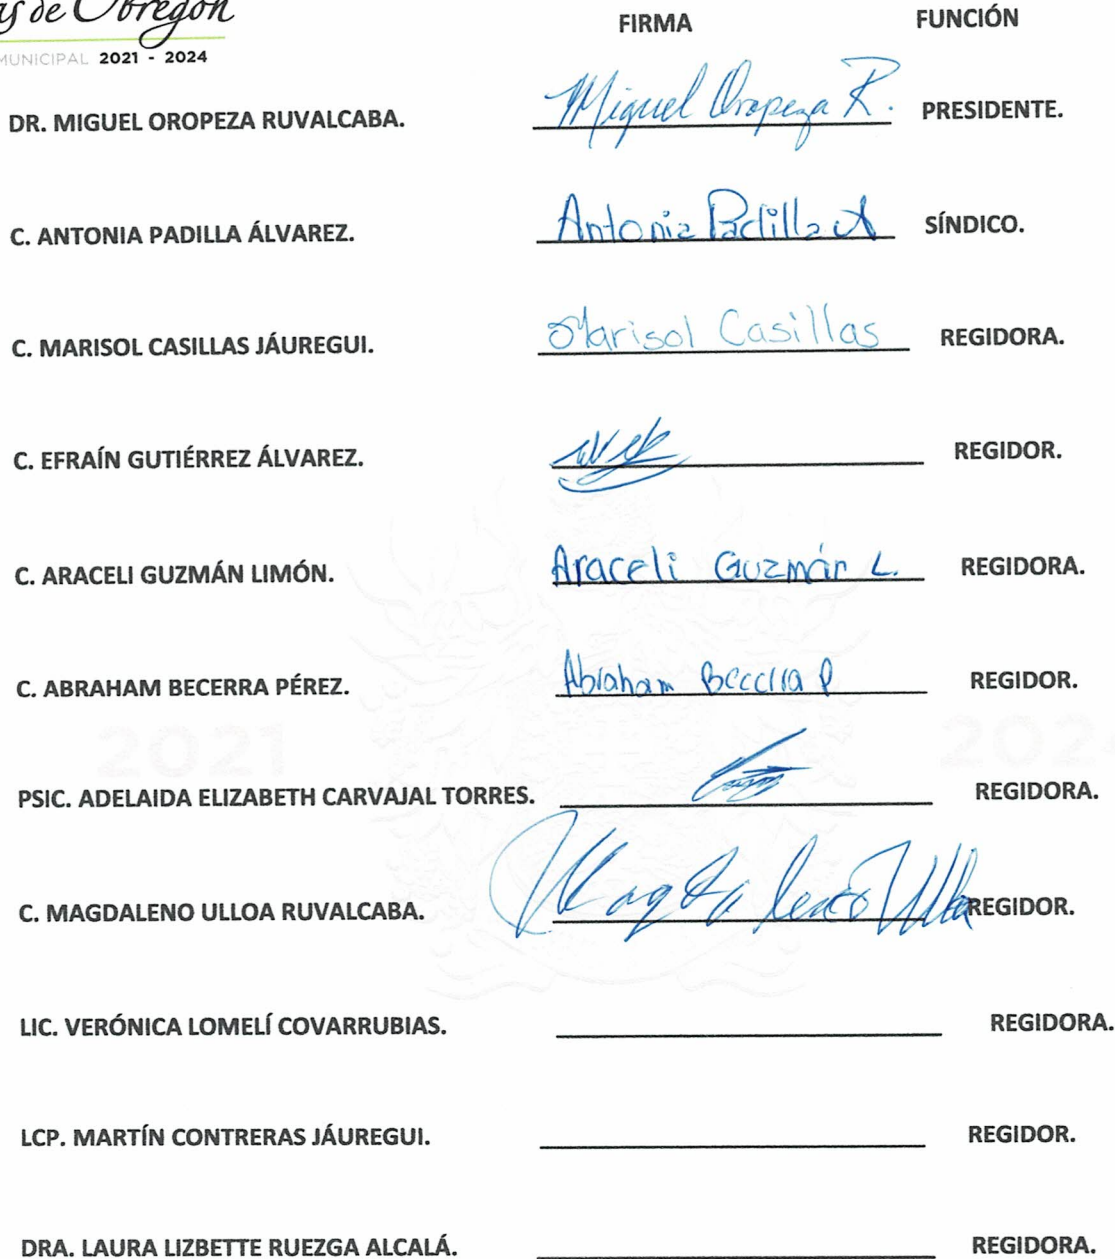 as de Obregón
MUNICIPAL 2021 - 2024
FIRMA FUNCIÓN
DR. MIGUEL OROPEZA RUVALCABA. Miguel Oropeza R. PRESIDENTE.
C. ANTONIA PADILLA ÁLVAREZ. Antonia Padilla A SÍNDICO.
C. MARISOL CASILLAS JÁUREGUI. Marisol Casillas REGIDORA.
C. EFRAÍN GUTIÉRREZ ÁLVAREZ. REGIDOR.
C. ARACELI GUZMÁN LIMÓN. Araceli Guzmán L. REGIDORA.
C. ABRAHAM BECERRA PÉREZ. Abraham Becerra P REGIDOR.
2021 2024
PSIC. ADELAIDA ELIZABETH CARVAJAL TORRES. REGIDORA.
C. MAGDALENO ULLOA RUVALCABA. Magdaleno Ulloa REGIDOR.
LIC. VERÓNICA LOMELÍ COVARRUBIAS. REGIDORA.
LCP. MARTÍN CONTRERAS JÁUREGUI. REGIDOR.
DRA. LAURA LIZBETTE RUEZGA ALCALÁ. REGIDORA.